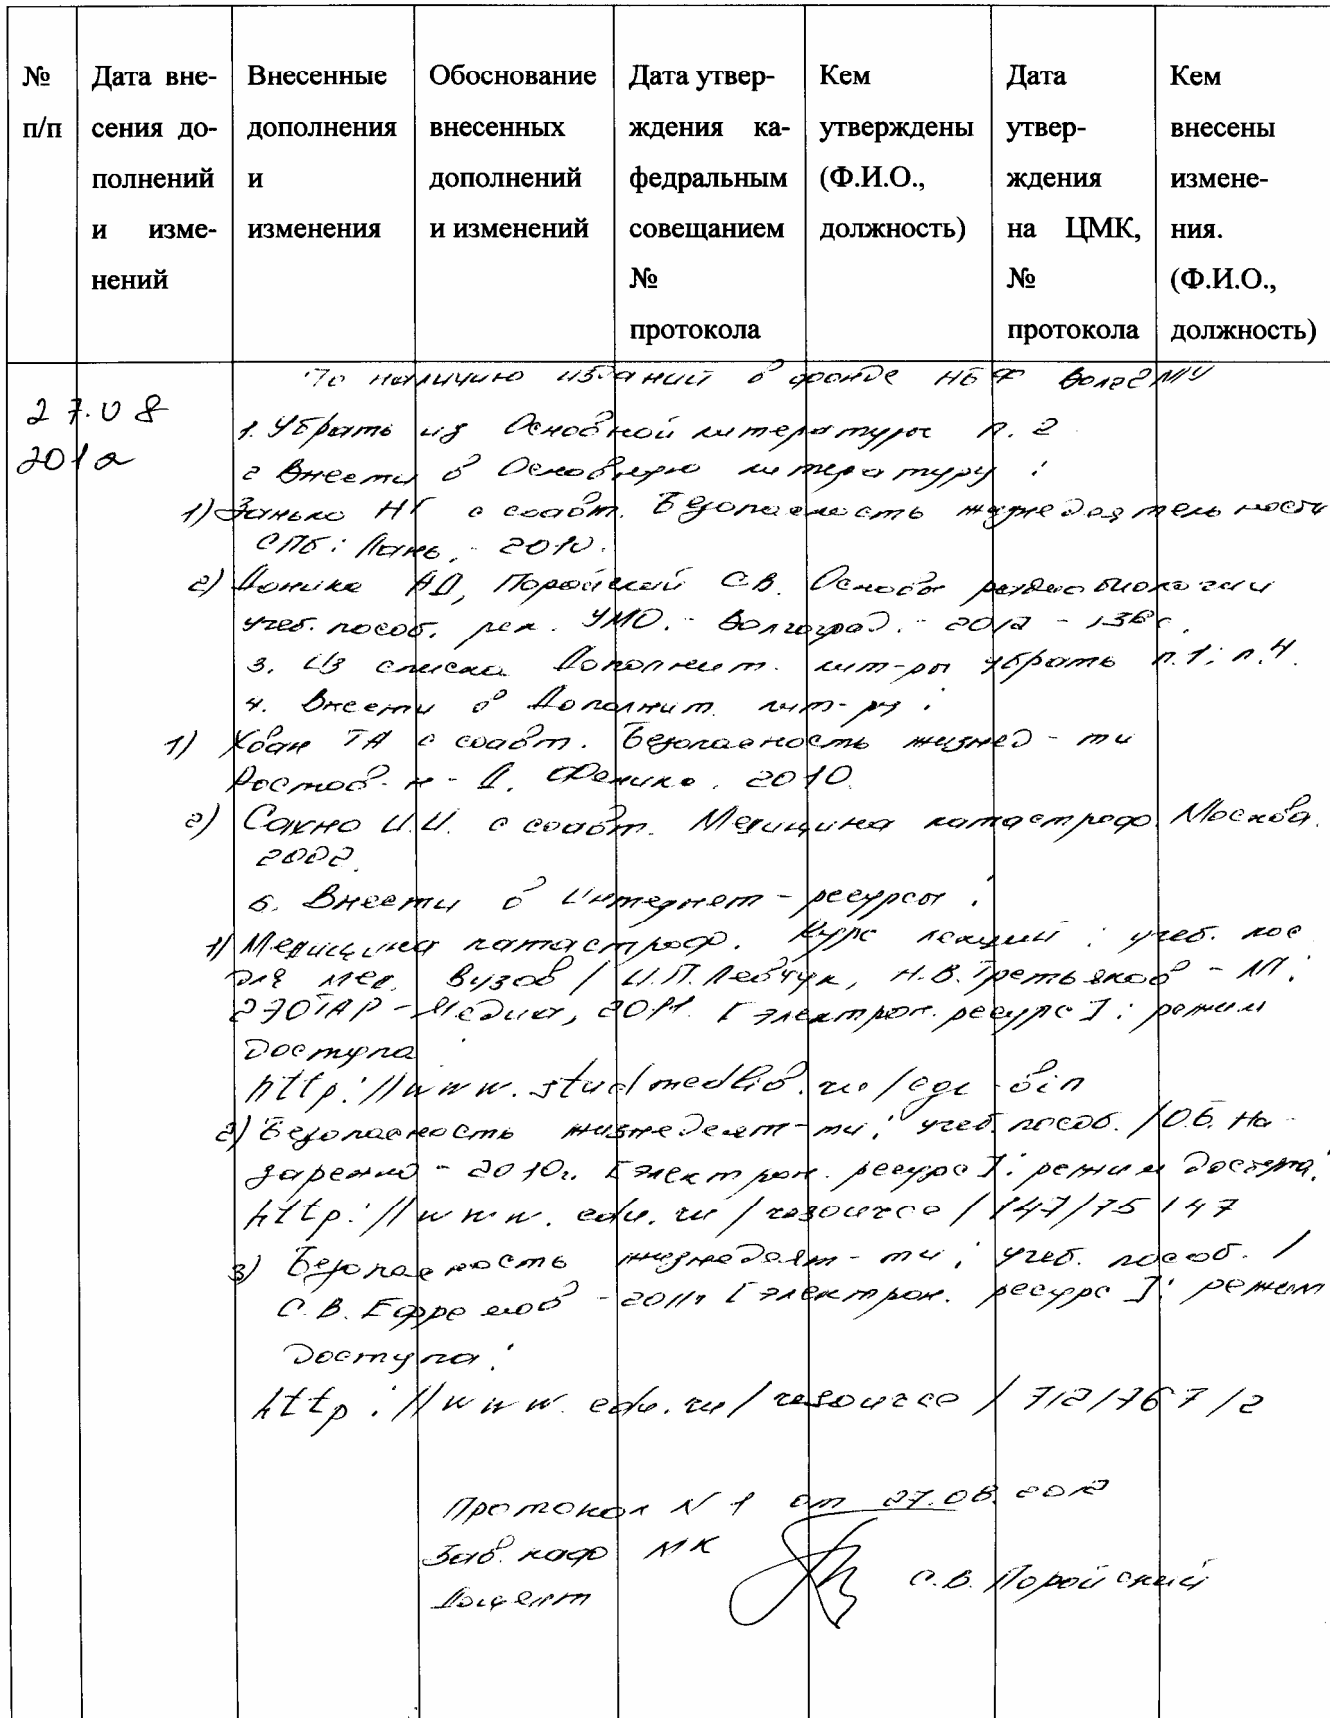 № п/п
Дата вне-
сения до-
полнений
и изме-
нений
Внесенные
дополнения
и
изменения
Обоснование
внесенных
дополнений
и изменений
Дата утвер-
ждения ка-
федральным
совещанием
№
протокола
Кем
утверждены
(Ф.И.О.,
должность)
Дата
утвер-
ждения
на ЦМК,
№
протокола
Кем
внесены
измене-
ния.
(Ф.И.О.,
должность)
27.08
2012
По наличию изданий в фонде НБФ ВолгГМУ
1. Убрать из Основной литературы п. 2
2 Внести в Основную литературу :
1) Занько НГ с соавт. Безопасность жизнедеятельности
СПб: Лань, - 2010.
2) Доника АД, Поройский С.В. Основы радиобиологии
учеб. пособ. рек. УМО. - Волгоград. - 2012 - 138с.
3. Из списка Дополнит. лит-ры убрать п.1; п.4.
4. Внести в Дополнит. лит-ру :
1) Хван ТА с соавт. Безопасность жизнед-ти
Ростов-н-Д, Феникс. 2010.
2) Сахно И.И. с соавт. Медицина катастроф. Москва.
2002.
5. Внести в Интернет-ресурсы :
1) Медицина катастроф. Курс лекций : учеб. пос
для мед. вузов / И.П. Левчук, Н.В. Третьяков - М.:
ГЭОТАР-Медиа, 2011. [электрон. ресурс]: режим
доступа :
http://www.studmedlib.ru/cgi-bin
2) Безопасность жизнедеят-ти: учеб. пособ. / О.Б. На-
заренко - 2010г. [электрон. ресурс]: режим доступа:
http://www.edu.ru/resource/147/75147
3) Безопасность жизнедеят-ти; учеб. пособ. /
С.В. Ефремов - 2011г [электрон. ресурс]: режим
доступа:
http://www.edu.ru/resource/712/76712
Протокол N 1 от 27.08.2012
Зав. каф МК
Доцент С.В. Поройский